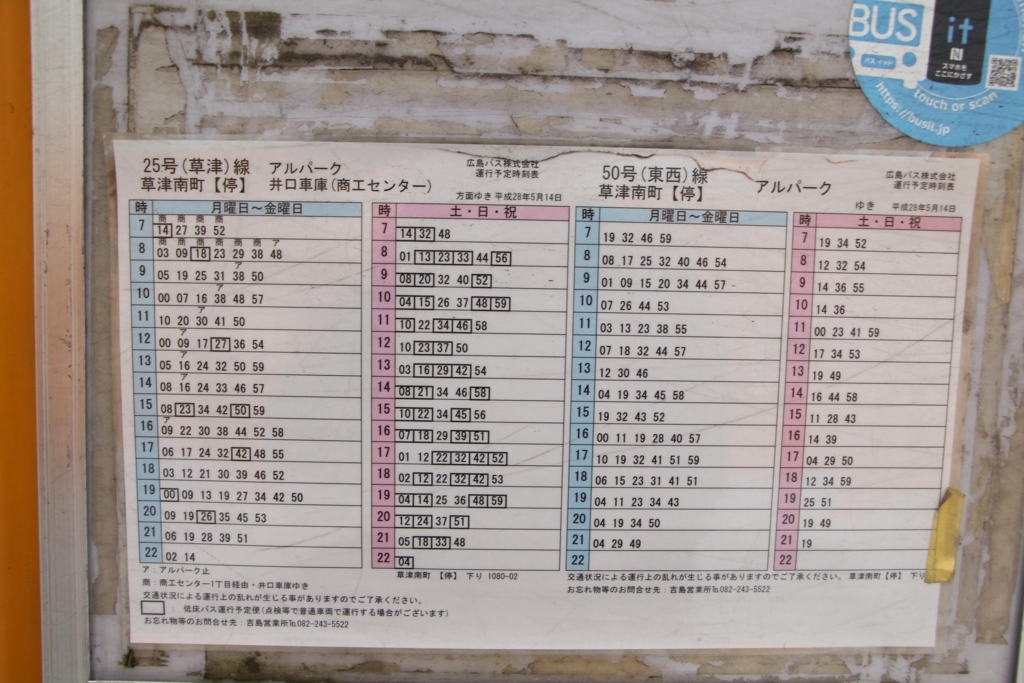 BUS
バス イット
it
N
スマホを
ここにかざす
touch or scan
https://busit.jp
25号(草津)線 アルパーク
草津南町【停】 井口車庫(商工センター)
広島バス株式会社
運行予定時刻表
方面ゆき 平成28年5月14日
時 月曜日～金曜日
商 商 商 商
7 14 27 39 52
商 商 商 商 商 商 ア
8 03 09 18 23 29 38 48
ア
9 05 19 25 31 38 50
ア
10 00 07 16 38 48 57
ア
11 10 20 30 41 50
ア
12 00 09 17 27 36 54
ア
13 05 16 24 32 50 59
ア
14 08 16 24 33 46 57
15 08 23 34 42 50 59
ア
16 09 22 30 38 44 52 58
17 06 17 24 32 42 48 55
18 03 12 21 30 39 46 52
19 00 09 13 19 27 34 42 50
20 09 19 26 35 45 53
21 06 19 28 39 51
22 02 14
ア：アルパーク止
商：商工センター1丁目経由・井口車庫ゆき
交通状況による運行上の乱れが生じる事がありますのでご了承ください。
：低床バス運行予定便(点検等で普通車両で運行する場合がございます)
お忘れ物等のお問合せ先：吉島営業所℡082-243-5522
時 土・日・祝
7 14 32 48
8 01 13 23 33 44 56
9 08 20 32 40 52
10 04 15 26 37 48 59
11 10 22 34 46 58
12 10 23 37 50
13 03 16 29 42 54
14 08 21 34 46 58
15 10 22 34 45 56
16 07 18 29 39 51
17 01 12 22 32 42 52
18 02 12 22 32 42 53
19 04 14 25 36 48 59
20 12 24 37 51
21 05 18 33 48
22 04
草津南町 【停】 下り 1080-02
50号(東西)線
草津南町【停】
アルパーク
広島バス株式会社
運行予定時刻表
ゆき 平成28年5月14日
時 月曜日～金曜日
7 19 32 46 59
8 08 17 25 32 40 46 54
9 01 09 15 20 34 44 57
10 07 26 44 53
11 03 13 23 38 55
12 07 18 32 44 57
13 12 30 46
14 04 19 34 45 58
15 19 32 43 52
16 00 11 19 28 40 57
17 10 19 32 41 51 59
18 06 15 23 31 41 51
19 04 11 23 34 43
20 04 19 34 50
21 04 29 49
22
時 土・日・祝
7 19 34 52
8 12 32 54
9 14 36 55
10 14 36
11 00 23 41 59
12 17 34 53
13 19 49
14 16 44 58
15 11 28 43
16 14 39
17 04 29 50
18 12 34 59
19 25 51
20 19 49
21 19
22
交通状況による運行上の乱れが生じる事がありますのでご了承ください。 草津南町 【停】 下り
お忘れ物等のお問合せ先：吉島営業所℡082-243-5522